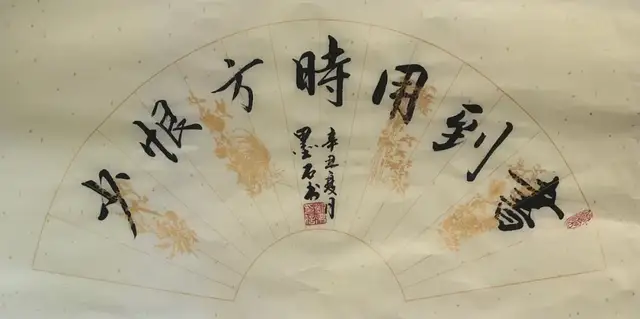 書到用時方恨少
辛丑夏月
墨石书